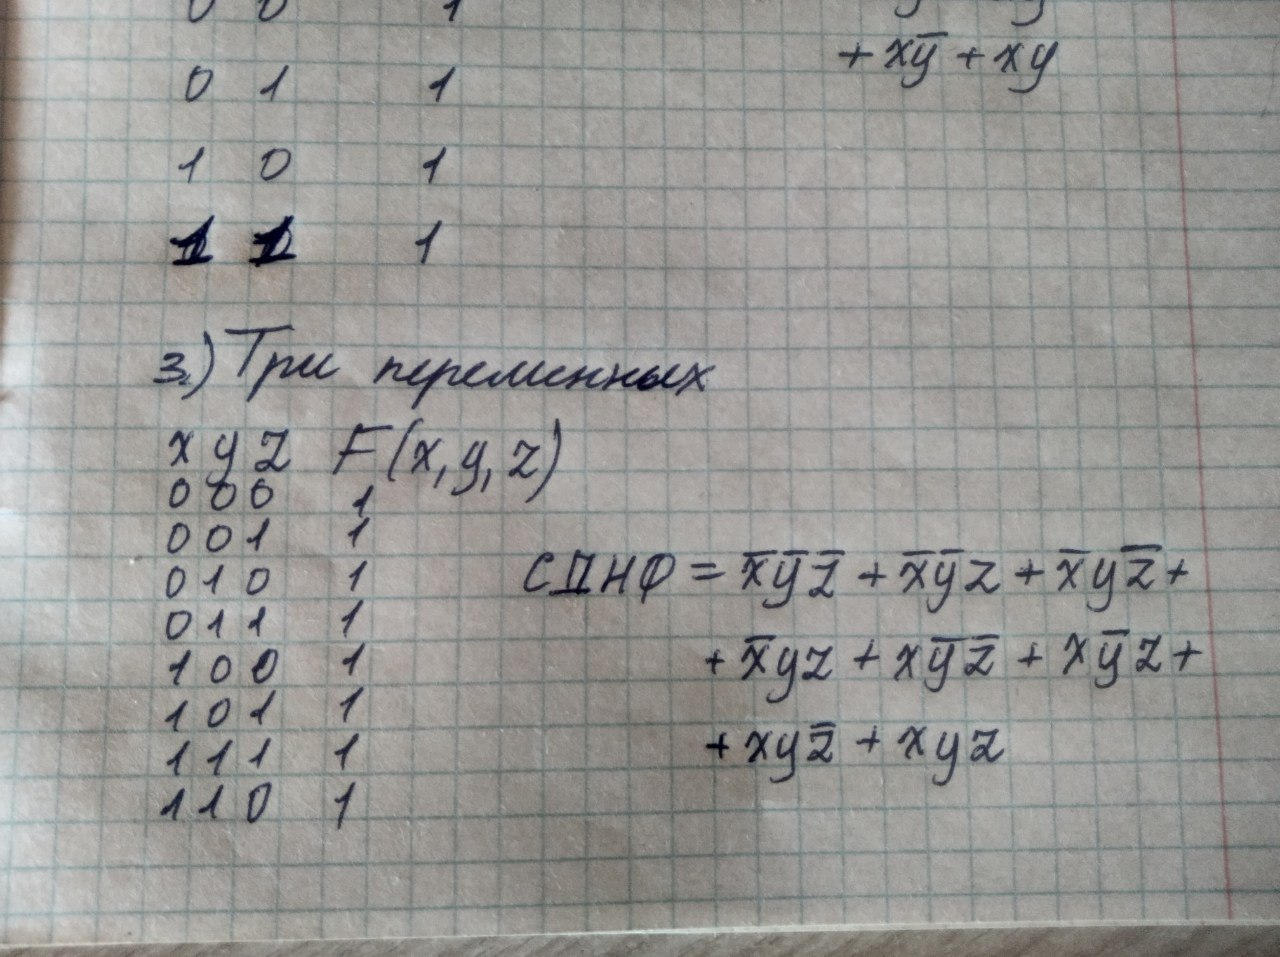 0 0 1
+ xy̅ + xy
0 1 1
1 0 1
1 1 1
3.) Три переменных
x y z F(x, y, z)
0 0 0 1
0 0 1 1
0 1 0 1
0 1 1 1
1 0 0 1
1 0 1 1
1 1 1 1
1 1 0 1
СДНФ = x̅y̅z̅ + x̅y̅z + x̅yz̅ +
+ x̅yz + xy̅z̅ + xy̅z +
+ xyz̅ + xyz